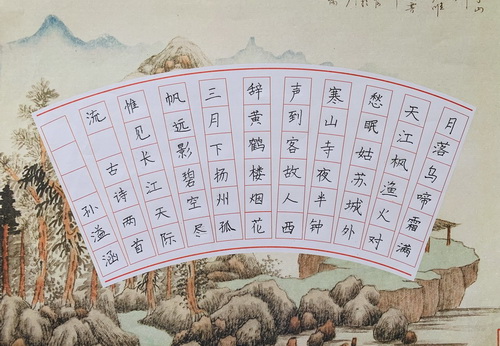 月落乌啼霜满
天江枫渔火对
愁眠姑苏城外
寒山寺夜半钟
声到客故人西
辞黄鹤楼烟花
三月下扬州孤
帆远影碧空尽
惟见长江天际
流 古诗两首
孙溢涵